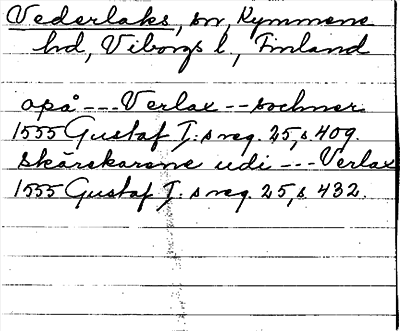 Vederlaks, sn, Kymmene
hd, Viborgs l., Finland
opå --- Verlax -- sochner
1555 Gustaf I:s reg. 25, s. 409.
skärekarene udi --- Verlax
1555 Gustaf I:s reg. 25, s. 432.